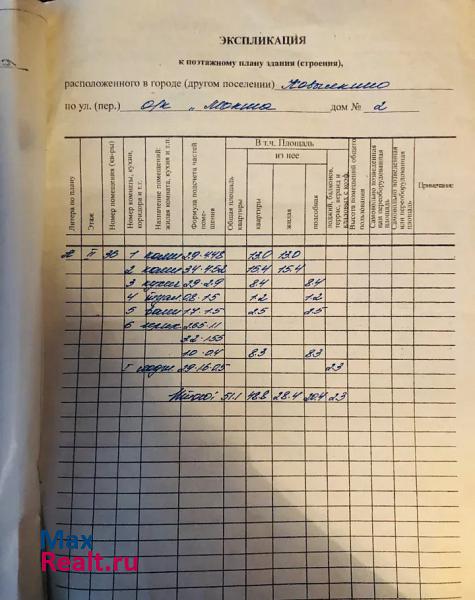 ЭКСПЛИКАЦИЯ
к поэтажному плану здания (строения),
расположенного в городе (другом поселении) Ковылкино
по ул. (пер.) о/к „Мокша дом № 2
Литера по плану
Этаж
Номер помещения (кв-ры)
Номер комнаты, кухни, коридора и т.г.
Назначение помещений: жилая комната, кухня и т.п.
Формула подсчета частей помещения
Общая площадь квартиры
В т.ч. Площадь
из нее
квартиры
жилая
подсобная
лоджий, балконов, террас, веранд и кладовых с коэф.
Высота помещений общего пользования
Самовольно возведенная или переоборудованная площадь
Самовольно возведенная или переоборудованная площадь
Примечание
II 1 29·448 13.0 13.0
2 34·452 15.4 15.4
3 кухня 29·29 8.4 8.4
4 08·15 1.2 1.2
5 17·15 2.5 2.5
6 265·11
32·155
10·04 8.3 8.3
29·16·05 2.3
Итого: 51.1 48.8 28.4 20.4 2.3
Max
Realt.ru